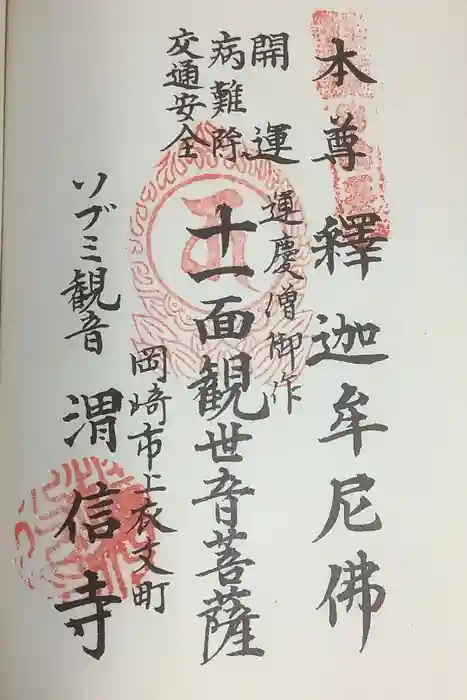 本尊釋迦牟尼佛
開運
運慶僧御作
病難除
交通安全
十一面観世音菩薩
岡崎市上衣文町
ソブミ観音
渭信寺